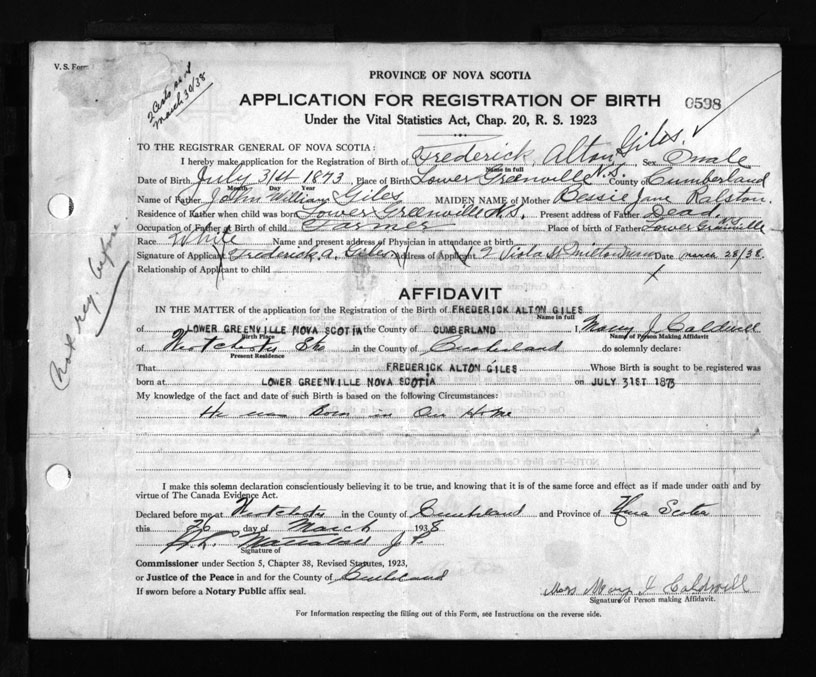 V. S. Form
March 30/38
PROVINCE OF NOVA SCOTIA
APPLICATION FOR REGISTRATION OF BIRTH 0598
Under the Vital Statistics Act, Chap. 20, R. S. 1923
TO THE REGISTRAR GENERAL OF NOVA SCOTIA:
I hereby make application for the Registration of Birth of Frederick Alton Giles. Sex male
Name in full
Date of Birth July 31st 1873 Place of Birth Lower Greenville N.S. County of Cumberland
Month Day Year
Name of Father John William Giles MAIDEN NAME of Mother Bessie Jane Ralston.
Residence of Father when child was born Lower Greenville N.S. Present address of Father Dead.
Occupation of Father at Birth of child Farmer Place of birth of Father Lower Greenville N.S.
Race White Name and present address of Physician in attendance at birth
Signature of Applicant Frederick A. Giles Address of Applicant Viola St Milton Mass Date march 28/38.
Relationship of Applicant to child
Not reg. before
AFFIDAVIT
IN THE MATTER of the application for the Registration of the Birth of FREDERICK ALTON GILES
Name in full
of LOWER GREENVILLE NOVA SCOTIA in the County of CUMBERLAND I, Mary J Caldwell
Birth Place Name of Person Making Affidavit
of Westchester Stn in the County of Cumberland do solemnly declare:
Present Residence
That FREDERICK ALTON GILES Whose Birth is sought to be registered was
born at LOWER GREENVILLE NOVA SCOTIA on JULY 31ST 1873
My knowledge of the fact and date of such Birth is based on the following Circumstances:
He was Born in Our Home
I make this solemn declaration conscientiously believing it to be true, and knowing that it is of the same force and effect as if made under oath and by
virtue of The Canada Evidence Act.
Declared before me at Westchester in the County of Cumberland and Province of Nova Scotia
this 26 day of March 1938
J.P.
Signature of
Commissioner under Section 5, Chapter 38, Revised Statutes, 1923,
or Justice of the Peace in and for the County of Cumberland
If sworn before a Notary Public affix seal.
Mrs Mary J Caldwell
Signature of Person making Affidavit.
For Information respecting the filling out of this Form, see Instructions on the reverse side.